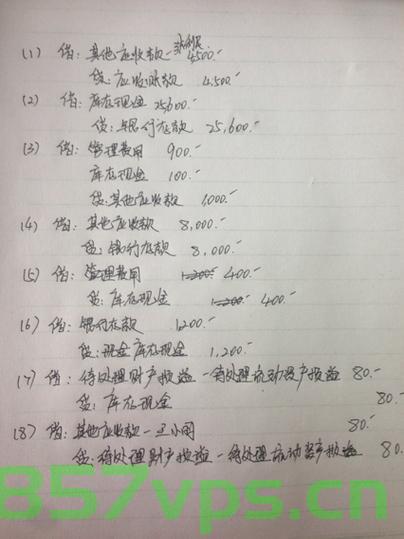 (1) 借: 其他应收款 4500.-
贷: 应收账款 4,500.-
(2) 借: 库存现金 25,600.-
贷: 银行存款 25,600.-
(3) 借: 管理费用 900.-
库存现金 100.-
贷: 其他应收款 1000.-
(4) 借: 其他应收款 8,000.-
贷: 银行存款 8,000.-
(5) 借: 管理费用 1200.- 400.-
贷: 库存现金 1200.- 400.-
(6) 借: 银行存款 1200.-
贷: 现金 库存现金 1,200.-
(7) 借: 待处理财产损益—待处理流动资产损益 80.-
贷: 库存现金 80.-
(8) 借: 其他应收款—王小刚 80.-
贷: 待处理财产损益—待处理流动资产损益 80.
857vps.cn